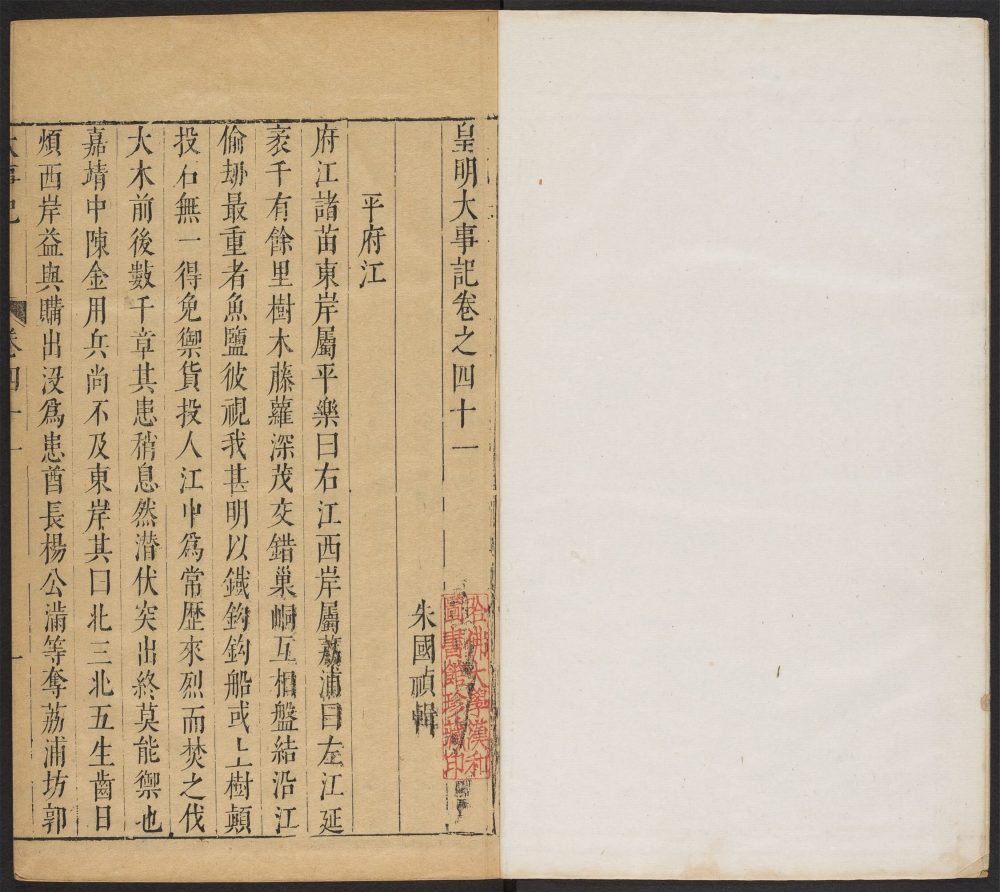 皇明大事記卷之四十一
朱國禎輯
平府江
府江諸苗東岸屬平樂曰右江西岸屬荔浦曰左江延
袤千有餘里樹木藤蘿深茂交錯巢峒互相盤結沿江
偷刼最重者魚鹽彼視我甚明以鐵鈎鈎船或上樹顛
投石無一得免禦貨投人江中爲常歷來烈而焚之伐
大木前後數千章其患稍息然潜伏突出終莫能禦也
嘉靖中陳金用兵尚不及東岸其曰北三北五生齒日
煩西岸益與購出没爲患酋長楊公滿等奪荔浦坊郭
大事記
卷四十一
一
哈佛大學漢和
圖書館珍藏印